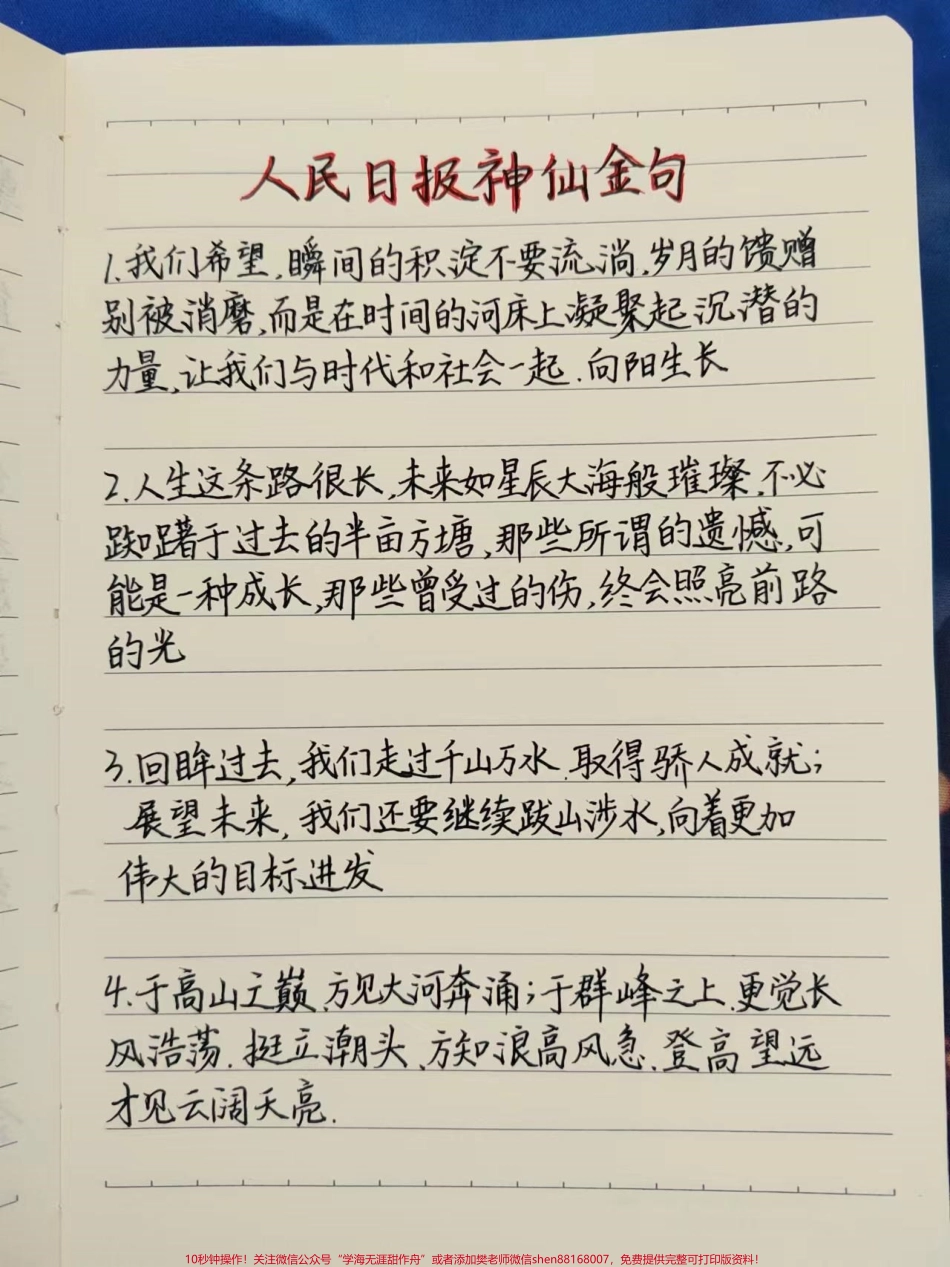 人民日报神仙金句
1.我们希望,瞬间的积淀不要流淌,岁月的馈赠
别被消磨,而是在时间的河床上凝聚起沉潜的
力量,让我们与时代和社会一起.向阳生长
2.人生这条路很长,未来如星辰大海般璀璨.不必
踟躇于过去的半亩方塘,那些所谓的遗憾,可
能是一种成长,那些曾受过的伤,终会照亮前路
的光
3.回眸过去,我们走过千山万水.取得骄人成就;
展望未来,我们还要继续跋山涉水,向着更加
伟大的目标进发
4.于高山之巅,方见大河奔涌;于群峰之上.更觉长
风浩荡.挺立潮头、方知浪高风急.登高望远
才见云阔天亮.
10秒钟操作！关注微信公众号“学海无涯甜作舟”或者添加樊老师微信shen88168007，免费提供完整可打印版资料！